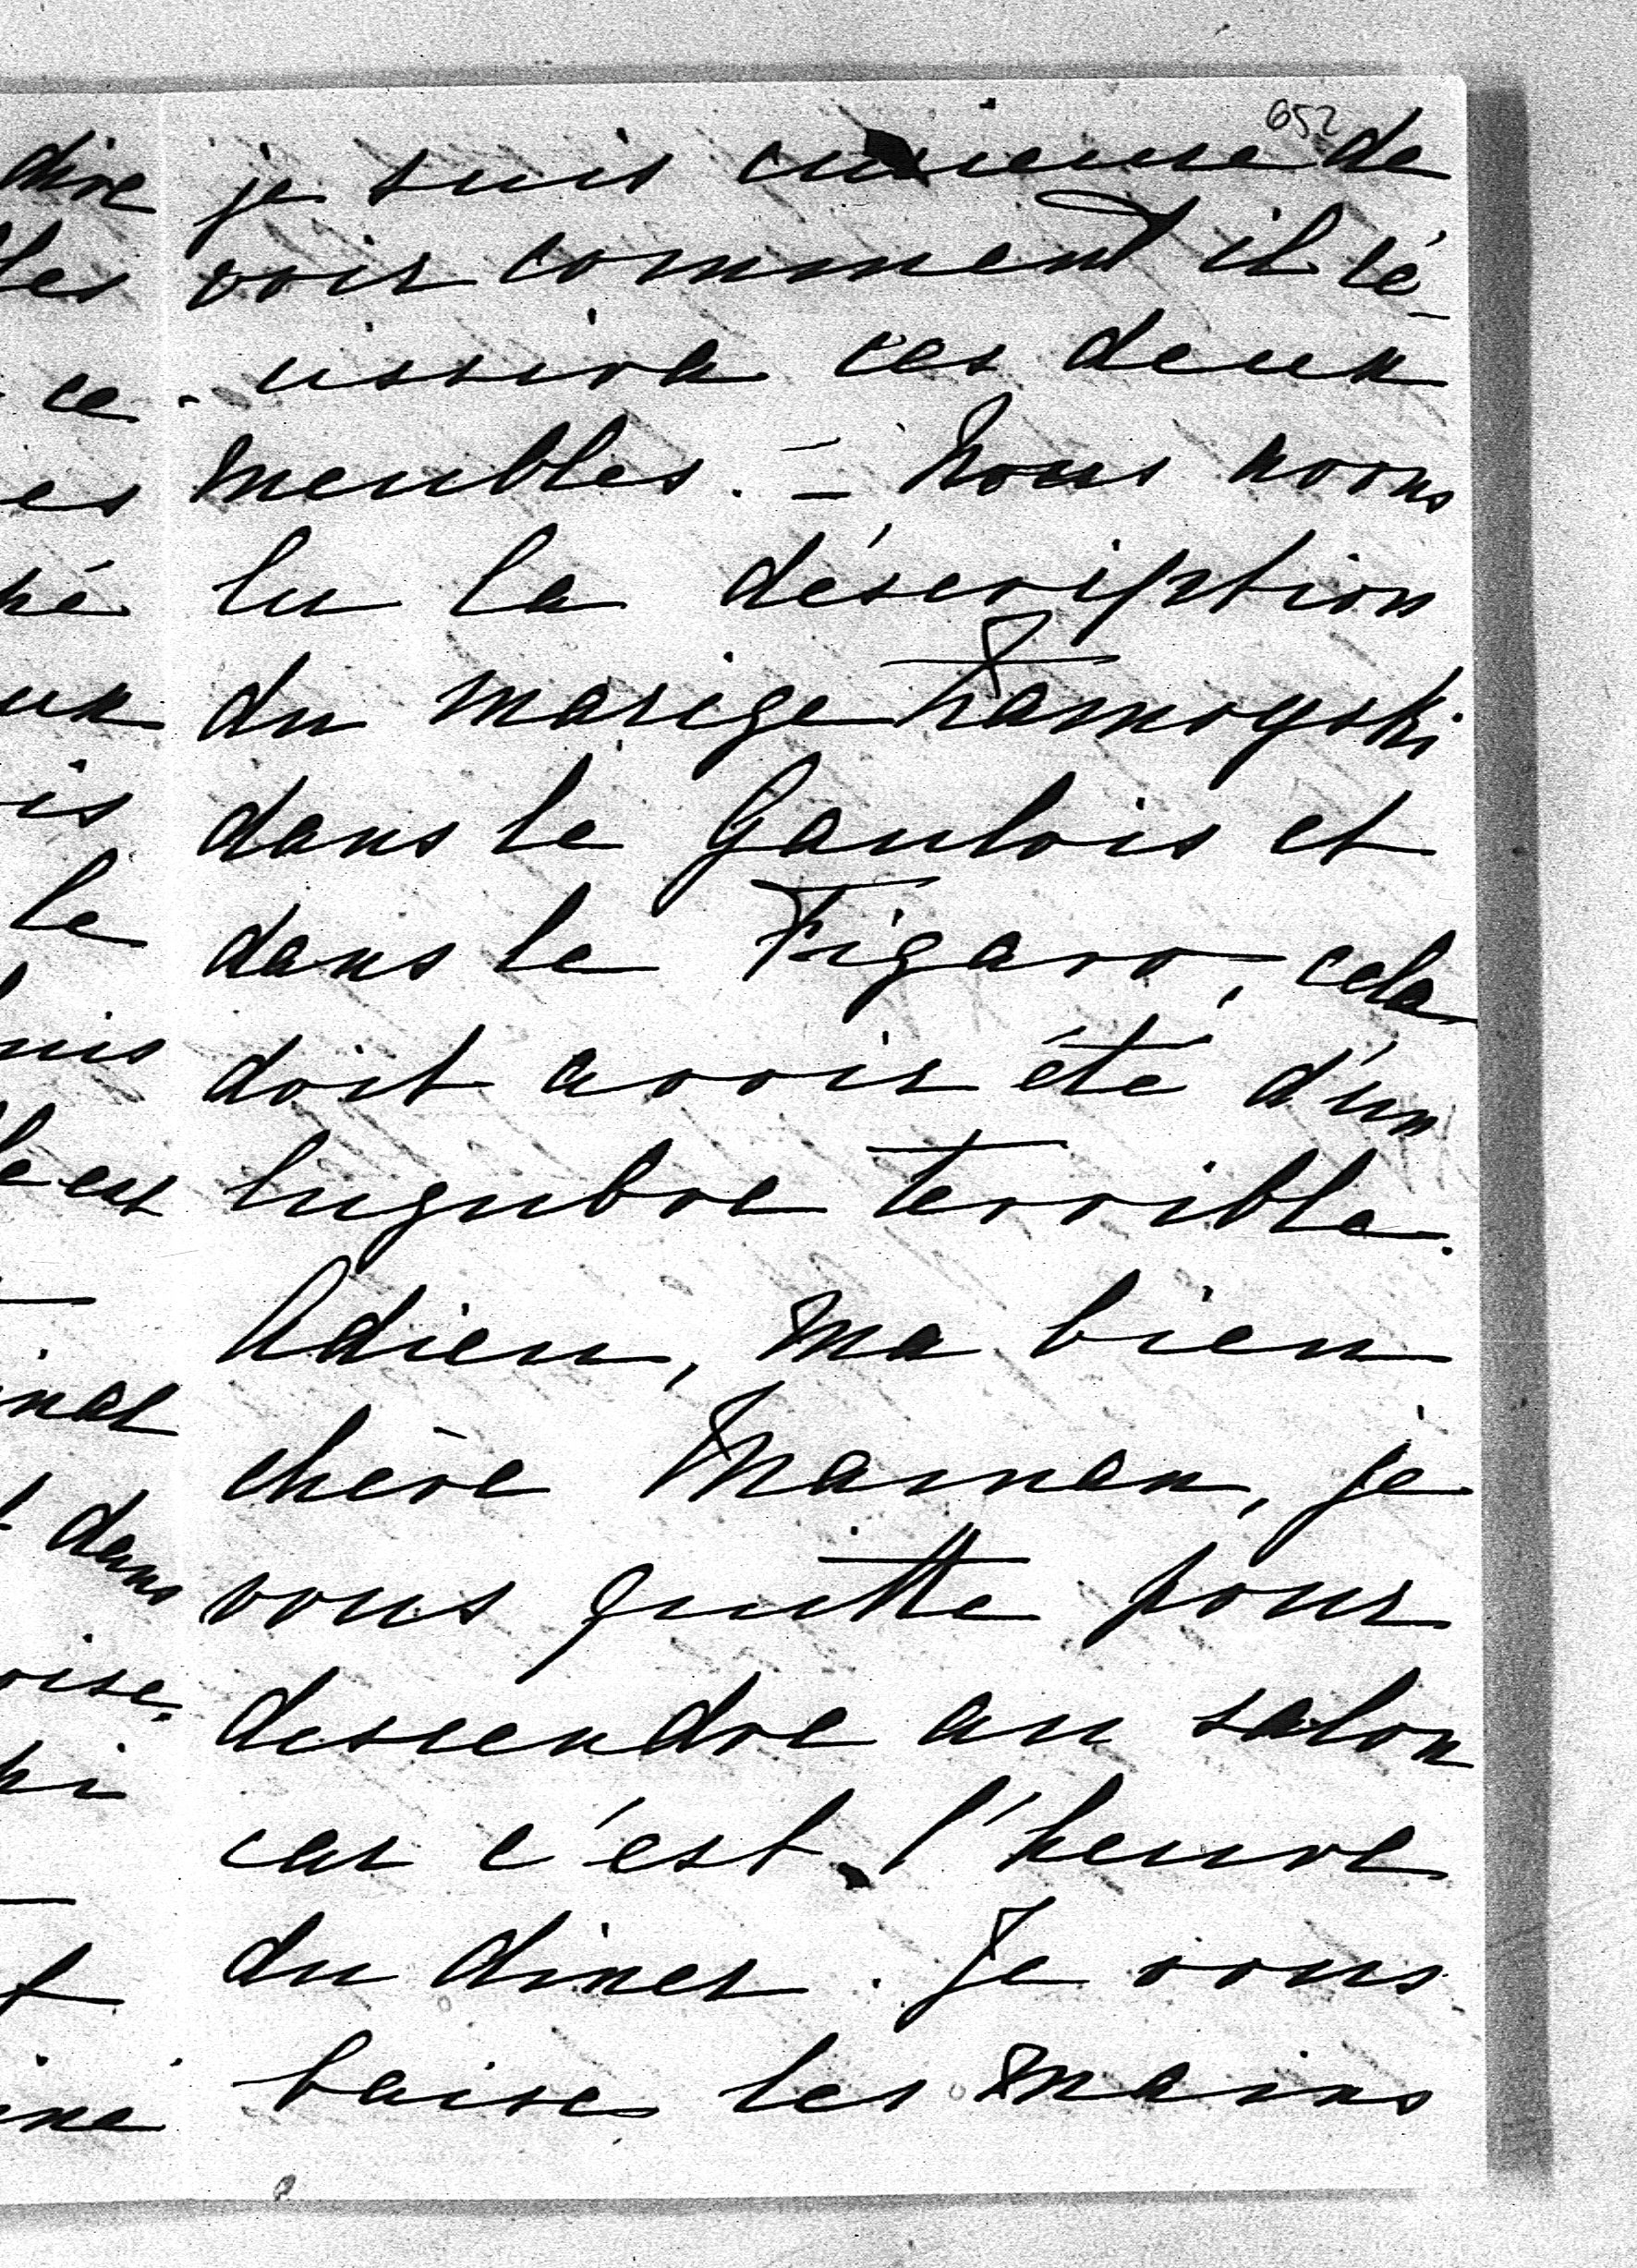 dire
les
ce
es
le
dans
652
je suis curieuse de
voir comment il ré-
-ussira ces deux
meubles. – Nous avons
lu la déscription
du marige Zamoyski
dans le Gaulois et
dans le Figaro, cela
doit avoir été d'un
lugubre terrible.
Adieu, ma bien
chère Maman, je
vous quitte pour
descendre au salon
car c'est l'heure
du diner. Je vous
baise les mains